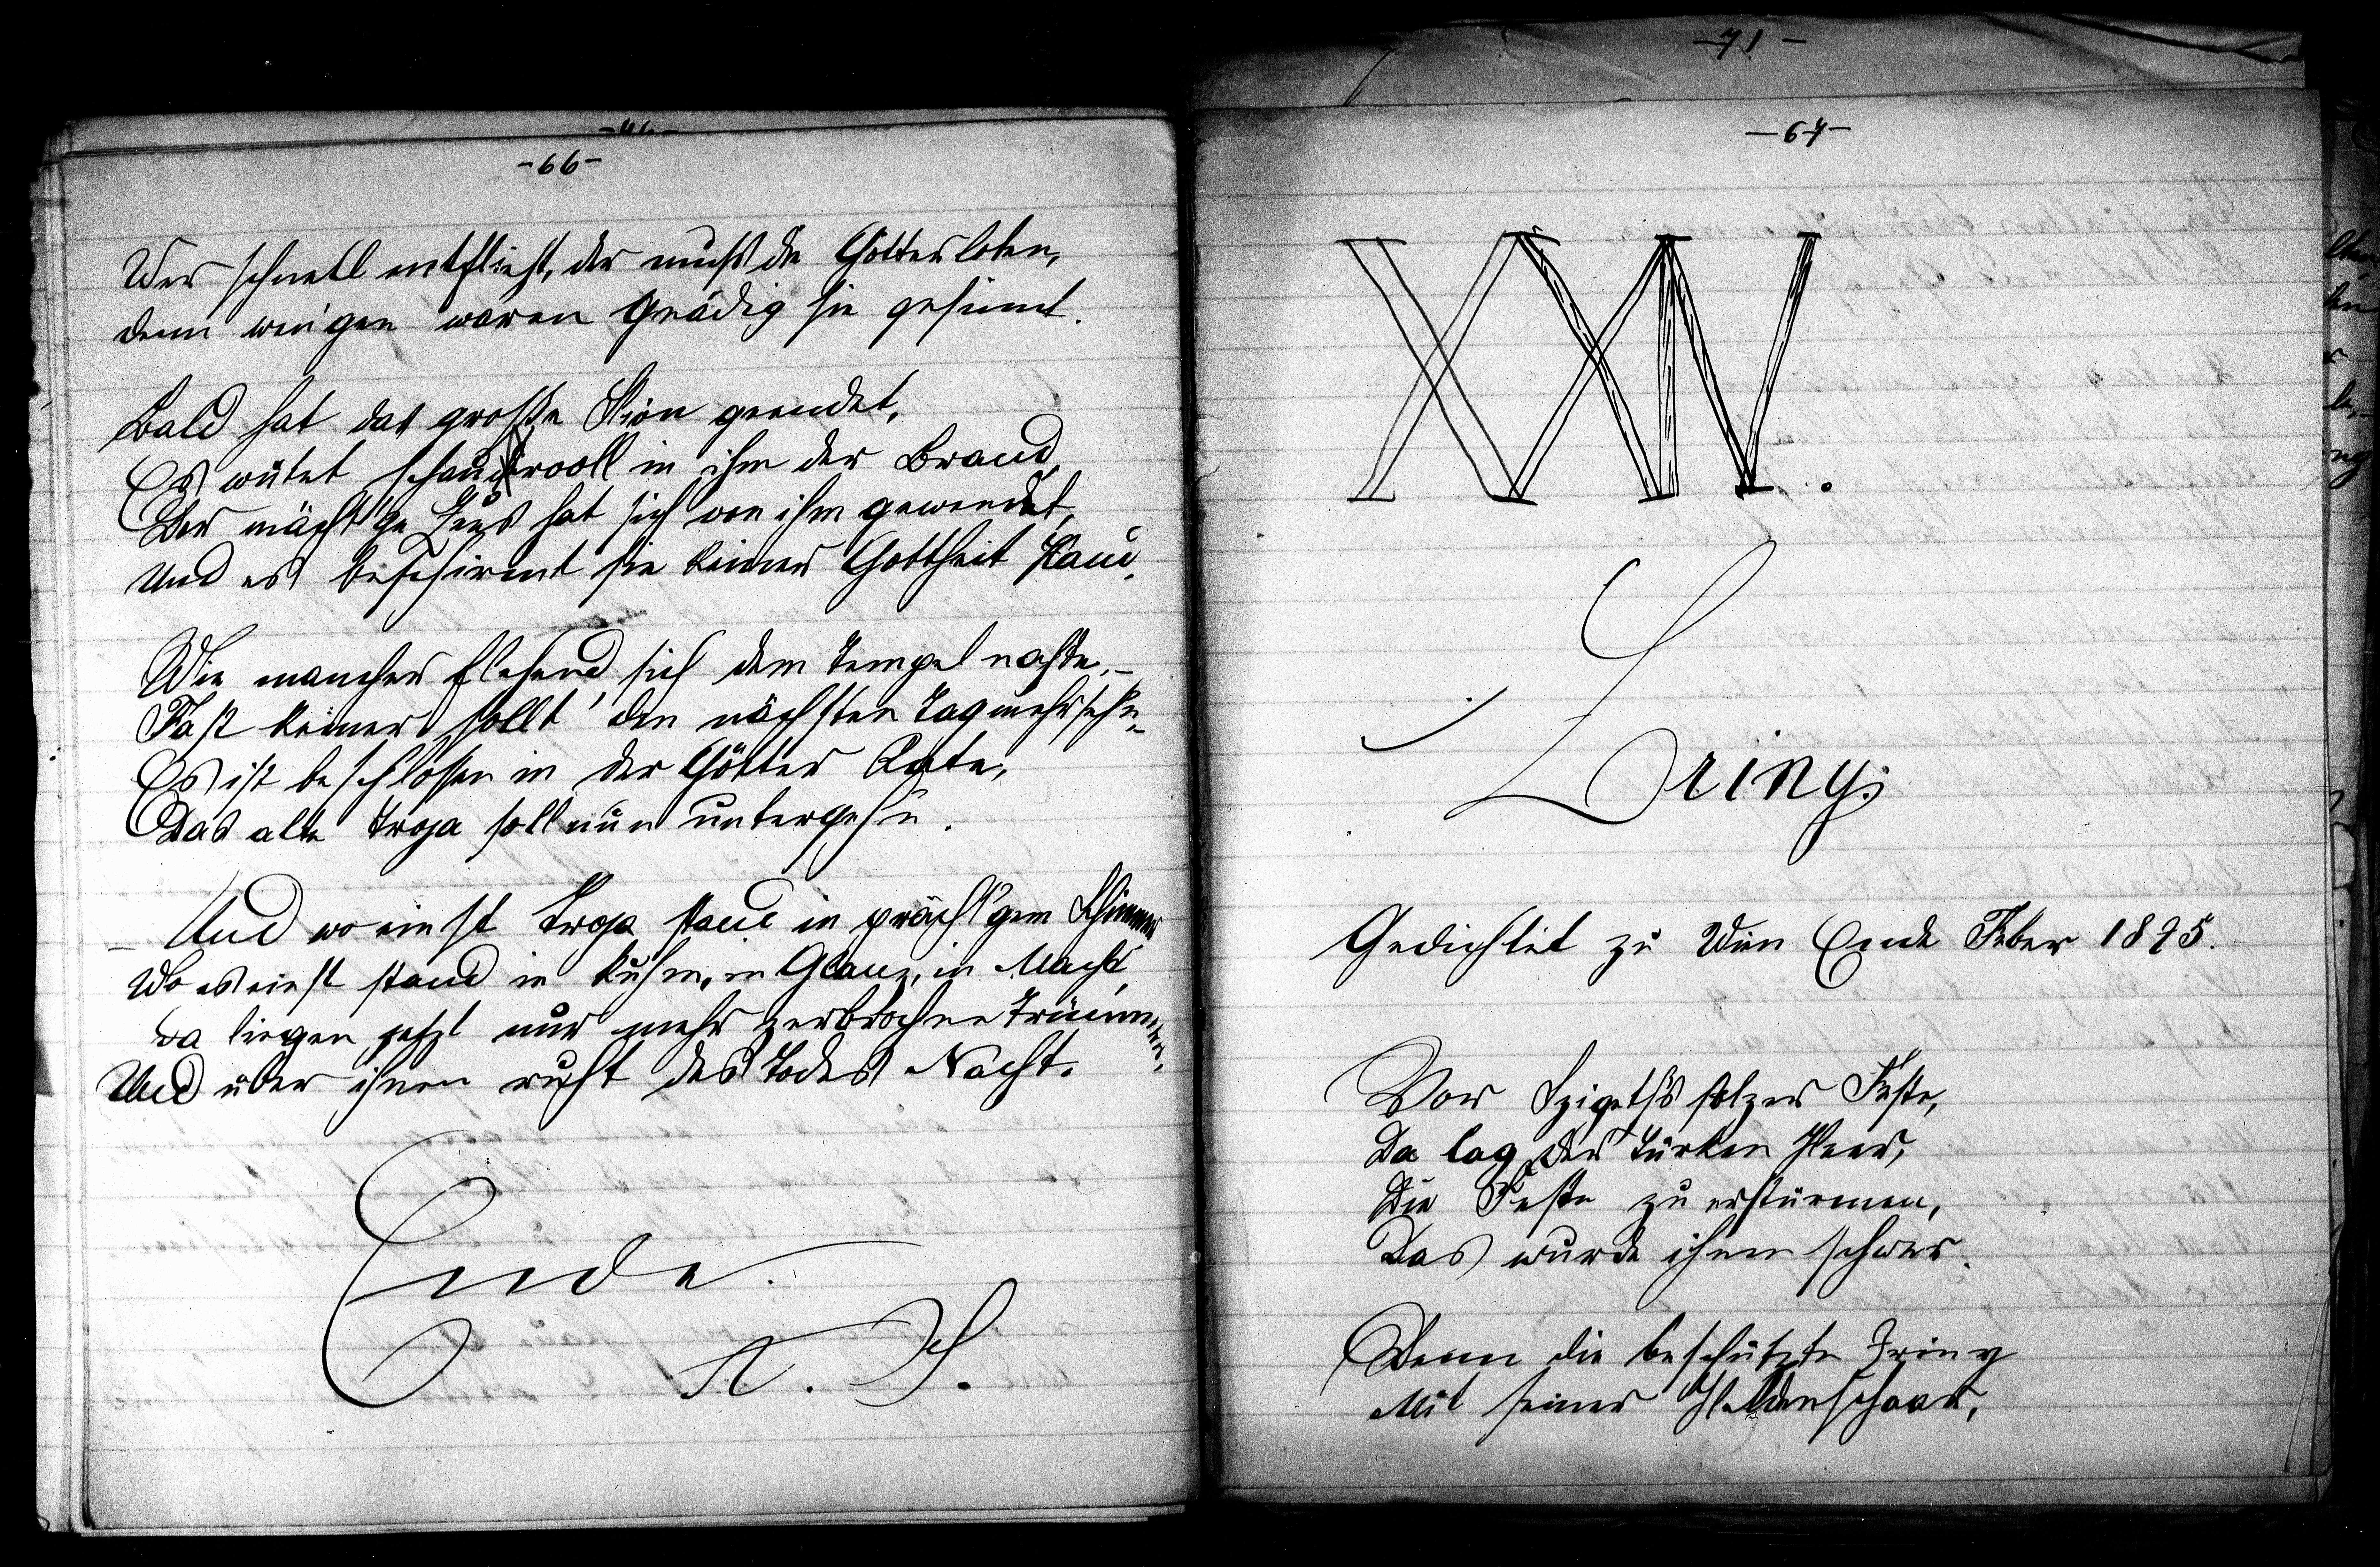 -66-
Wer schnell entflieht, der muß die Götter loben,
denn wen'gen waren gnädig sie gesinnt.
Bald hat das große Ilion geendet,
Es wütet schauervoll in ihm der Brand
Der mächt'ge Zeus hat sich von ihm gewendet,
Und es beschirmt sie keiner Gottheit Hand.
Wie mancher flehend sich dem Tempel nahte,–
Fast keiner sollt' den nächsten Tag mehr sehn,
Es ist beschlossen in der Götter Rate,
Das alte Troja soll nun untergehn.
– Und wo einst Troja stand in prächt'gem Schimmer
Wo es einst stand in Ruhm, in Glanz, in Macht,
Da liegen jetzt nur mehr zerbrochne Trümmer,
Und über ihnen ruht des Todes Nacht.
Ende.
A. S.
-71-
-67-
XXIV.
Zriny.
Gedichtet zu Wien Ende Feber 1895.
Vor Szigeth's stolzer Feste,
Da lag der Türken Heer,
Die Feste zu erstürmen,
Das wurde ihnen schwer.
Denn die beschützte Zriny
Mit seiner Heldenschaar,